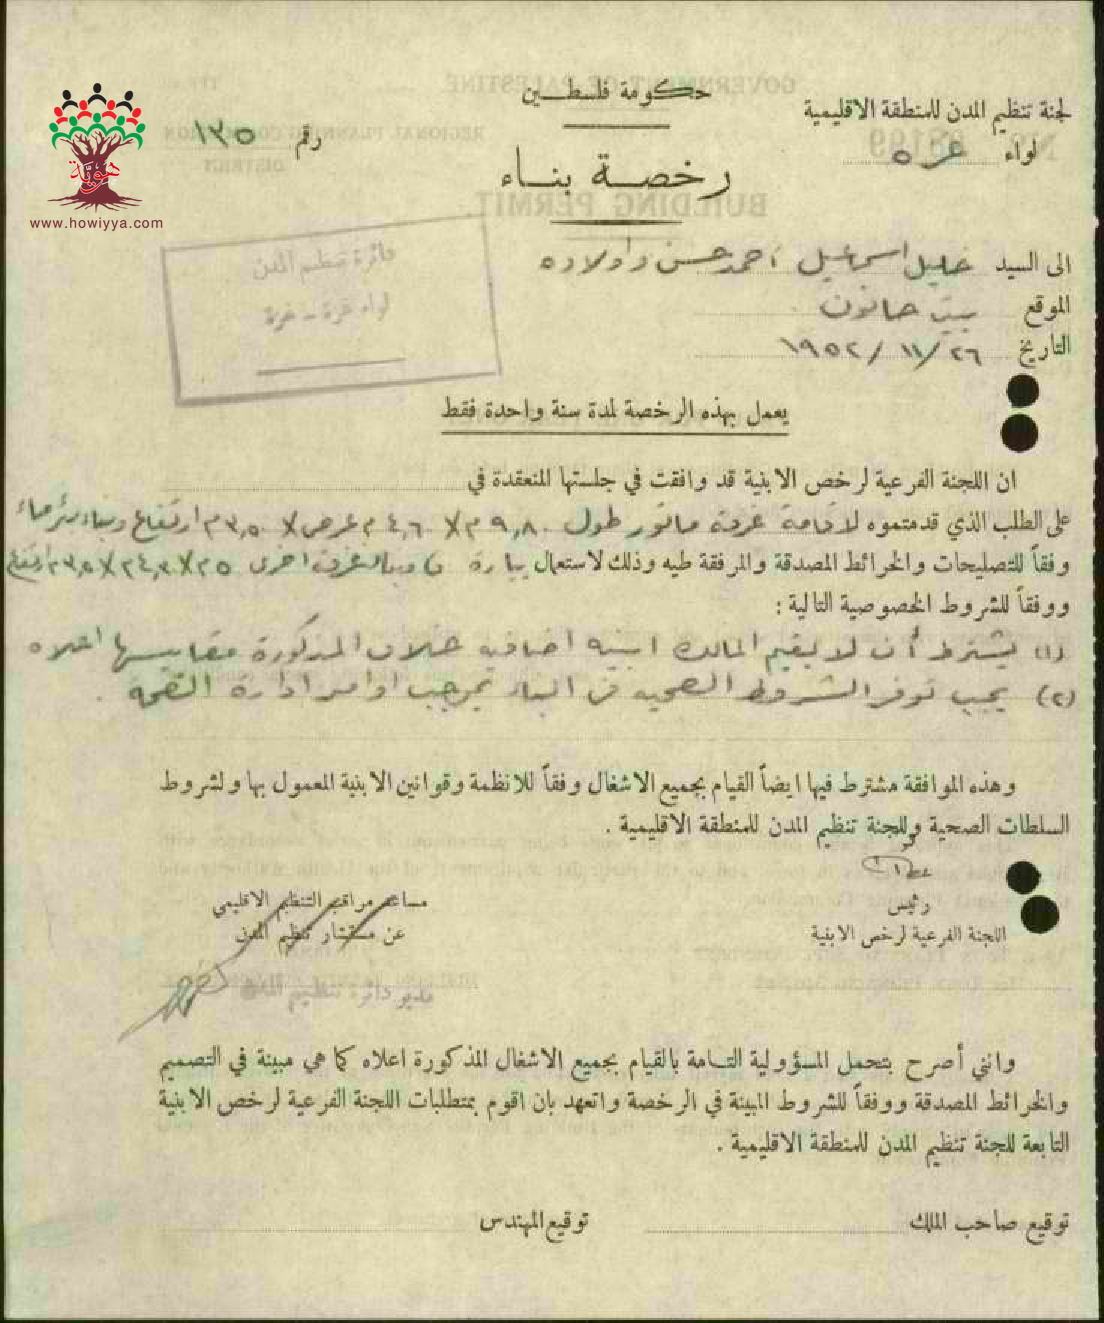 حكومة فلسطين
لجنة تنظيم المدن للمنطقة الاقليمية
لواء غزه
رقم ١٣٥
رخصة بناء
هوية
www.howiyya.com
دائرة تنظيم المدن
لواء غزة - غزة
الى السيد خليل اسماعيل احمد حسن واولاده
الموقع بيت حانون
التاريخ ٢٦/ ١١/ ١٩٥٢
يعمل بهذه الرخصة لمدة سنة واحدة فقط
ان اللجنة الفرعية لرخص الابنية قد وافقت في جلستها المنعقدة في
على الطلب الذي قدمتموه لاقامة غرفة ماتور طول ٩,٨٠م X ٤,٦٠م عرض X ٣,٥٠م ارتفاع وبناء
وفقاً للتصليحات والخرائط المصدقة والمرفقة طيه وذلك لاستعمال بيارة غرفة اخرى
ووفقاً للشروط الخصوصية التالية :
(١) يشترط أن لا يقيم المالك ابنيه اضافيه خلاف المذكورة مقاييسها اعلاه
(٢) يجب توفر الشروط الصحيه في البناء بموجب اوامر ادارة الصحه .
وهذه الموافقة مشترط فيها ايضاً القيام بجميع الاشغال وفقاً للانظمة وقوانين الابنية المعمول بها ولشروط
السلطات الصحية وللجنة تنظيم المدن للمنطقة الاقليمية .
رئيس
اللجنة الفرعية لرخص الابنية
مساعد مراقب التنظيم الاقليمي
عن مستشار تنظيم المدن
مدير دائرة تنظيم المدن
وانني أصرح بتحمل المسؤولية التامة بالقيام بجميع الاشغال المذكورة اعلاه كما هي مبينة في التصميم
والخرائط المصدقة ووفقاً للشروط المبينة في الرخصة واتعهد بان اقوم بمتطلبات اللجنة الفرعية لرخص الابنية
التابعة للجنة تنظيم المدن للمنطقة الاقليمية .
توقيع صاحب الملك
توقيع المهندس